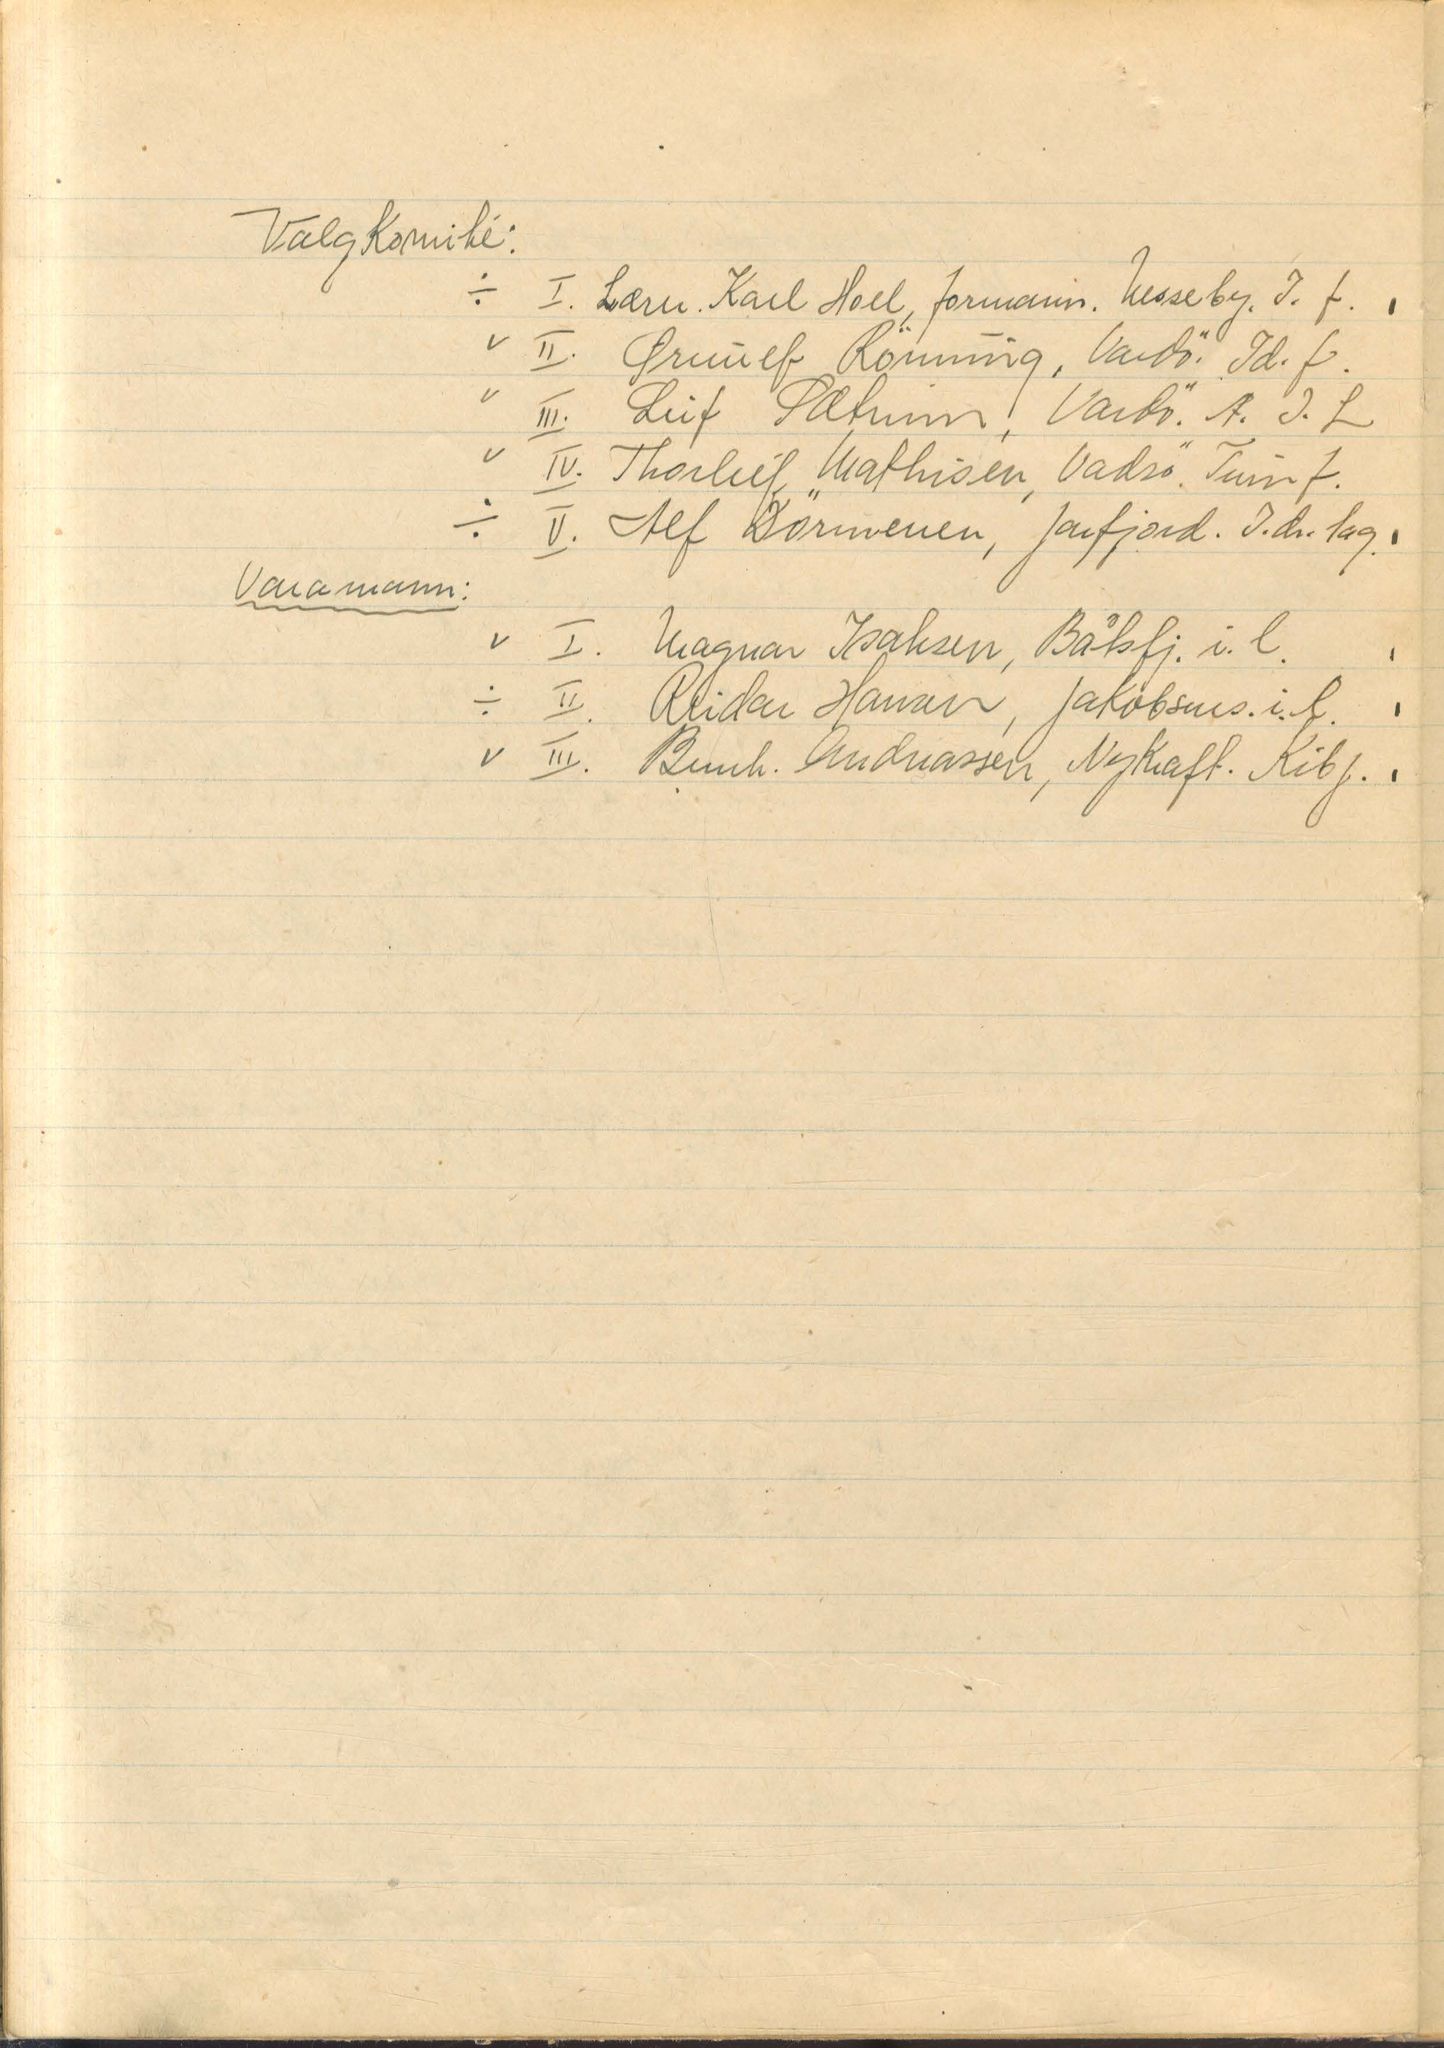 Valgkomité:
÷ I. Lærer. Karl Hoel, formann. Nesseby. I. f.
v II. Ørnulf Rönning, Vardö. Id. f.
v III. Leif Sætrum, Vardö. A. I. L
v IV. Thorleif Mathisen, Vadsö. Turnf.
÷ V. Alf Dörmenen, Jarfjord. I.dr. lag.
Varamann:
v I. Magnar Isaksen, Båtsfj. i. l.
÷ II. Reidar Hansen, Jakobsnes. i. l.
v III. Bernh. Andreassen, Nykraft. Kibg.